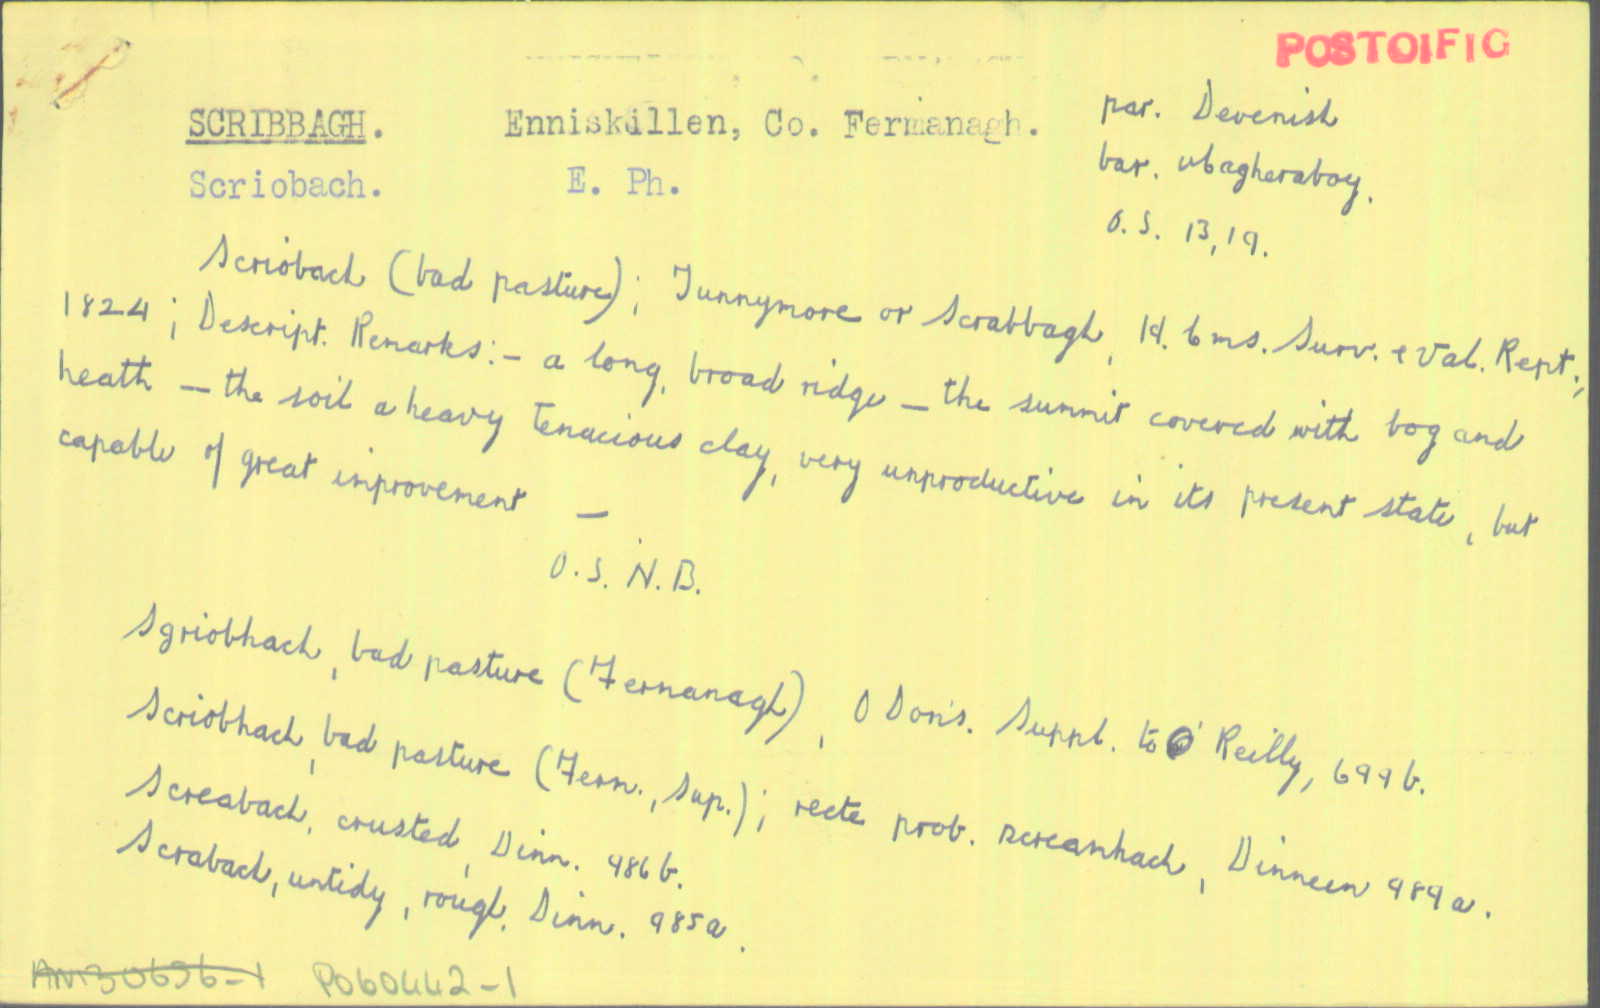 POSTOIFIG
SCRIBBAGH. Enniskillen, Co. Fermanagh. par. Devenish
Scriobach. E. Ph. bar. Magheraboy.
O.S. 13,19.
Scriobach (bad pasture); Tunnymore or Scrabbagh, Wm. Surv. & Val. Rept.,
1824; Descript. Remarks:- a long, broad ridge — the summit covered with bog and
heath — the soil a heavy tenacious clay, very unproductive in its present state, but
capable of great improvement —
O.S.N.B.
Sgriobhach, bad pasture (Fermanagh), O Don's. Suppl. to O' Reilly, 699b.
Scriobhach, bad pasture (Ferm., Sup.); recte prob. screamhach, Dinneen 989a.
Screabach, crusted, Dinn. 986b.
Scrabach, untidy, rough. Dinn. 985a.
AN130656-1 P060442-1